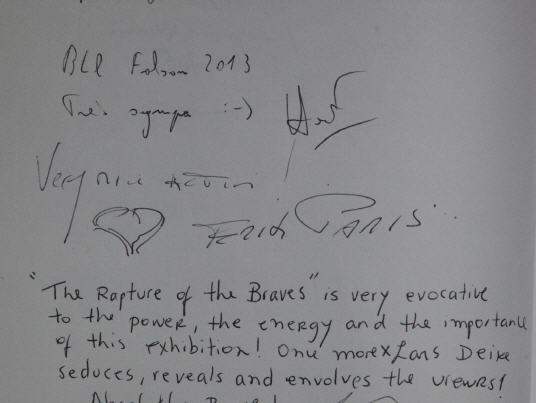 Folsom 2013
Très sympa :-)
Very nice
Erich Paris
"The Rapture of the Braves" is very evocative
to the power, the energy and the importance
of this exhibition! One more x Lars Deike
seduces, reveals and envolves the viewrs!